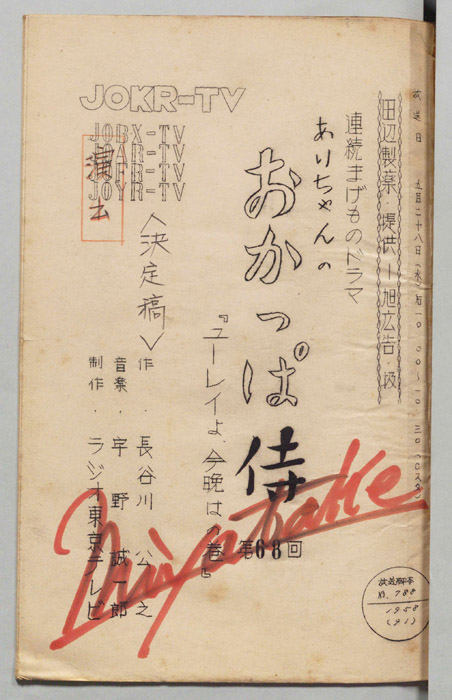 放送日 五月二十八日(水)后一〇.〇〇—一〇.三〇(Gスタ)
田辺製薬・提供—旭広告・扱
連続まげものドラマ
ありちゃんの
おかっぱ侍
第68回
『ユーレイよ、今晩は』の巻
<決定稿>
作・長谷川公之
音楽・宇野誠一郎
制作・ラジオ東京テレビ
JOKR-TV
JOBX-TV
JOAR-TV
JOFR-TV
JOYR-TV
演出
Miyatake
放送脚本
No. 788
1958
(21)